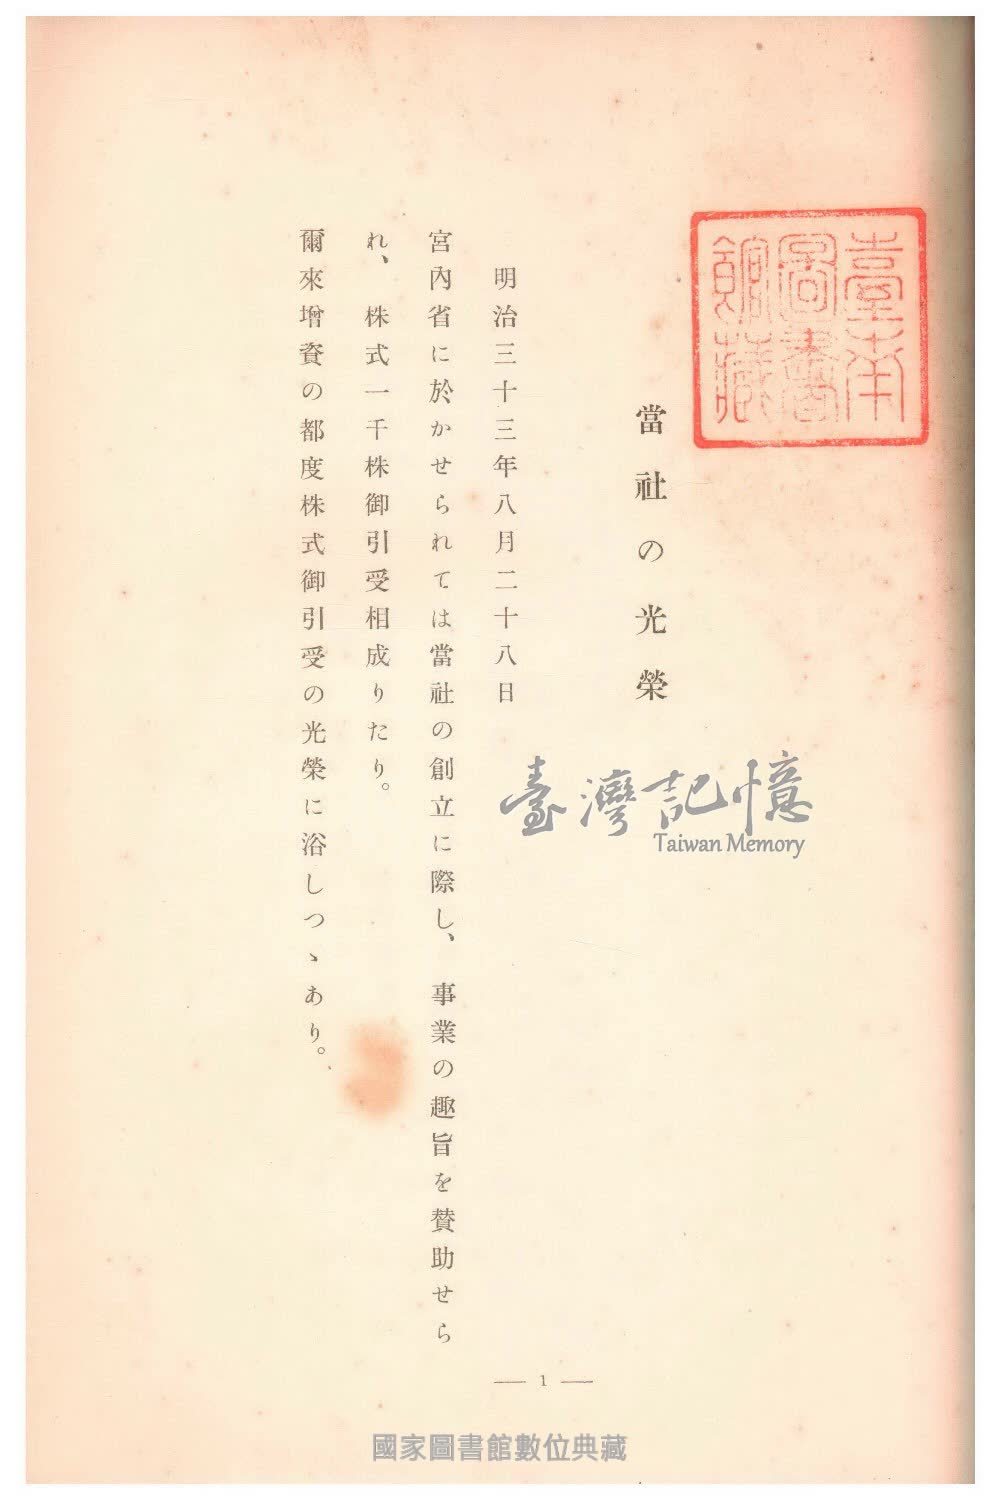 臺南
圖書
館藏
當社の光榮
明治三十三年八月二十八日
宮內省に於かせられては當社の創立に際し、事業の趣旨を賛助せら
れ、株式一千株御引受相成りたり。
爾來增資の都度株式御引受の光榮に浴しつゝあり。
臺灣記憶
Taiwan Memory
— 1 —
國家圖書館數位典藏